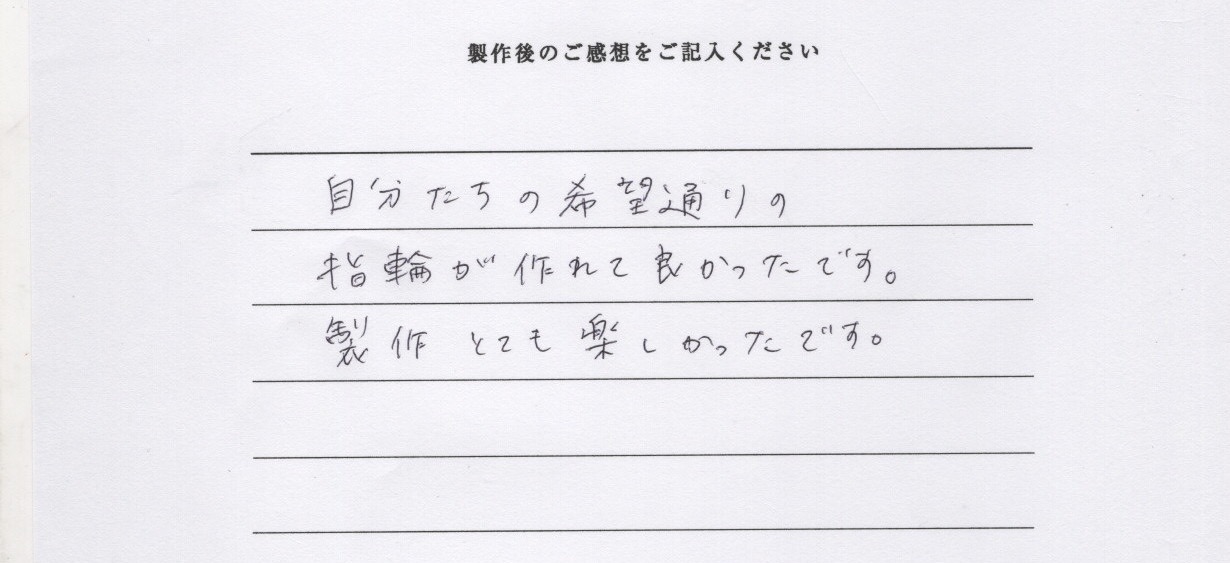 製作後のご感想をご記入ください
自分たちの希望通りの
指輪が作れて良かったです。
製作とても楽しかったです。